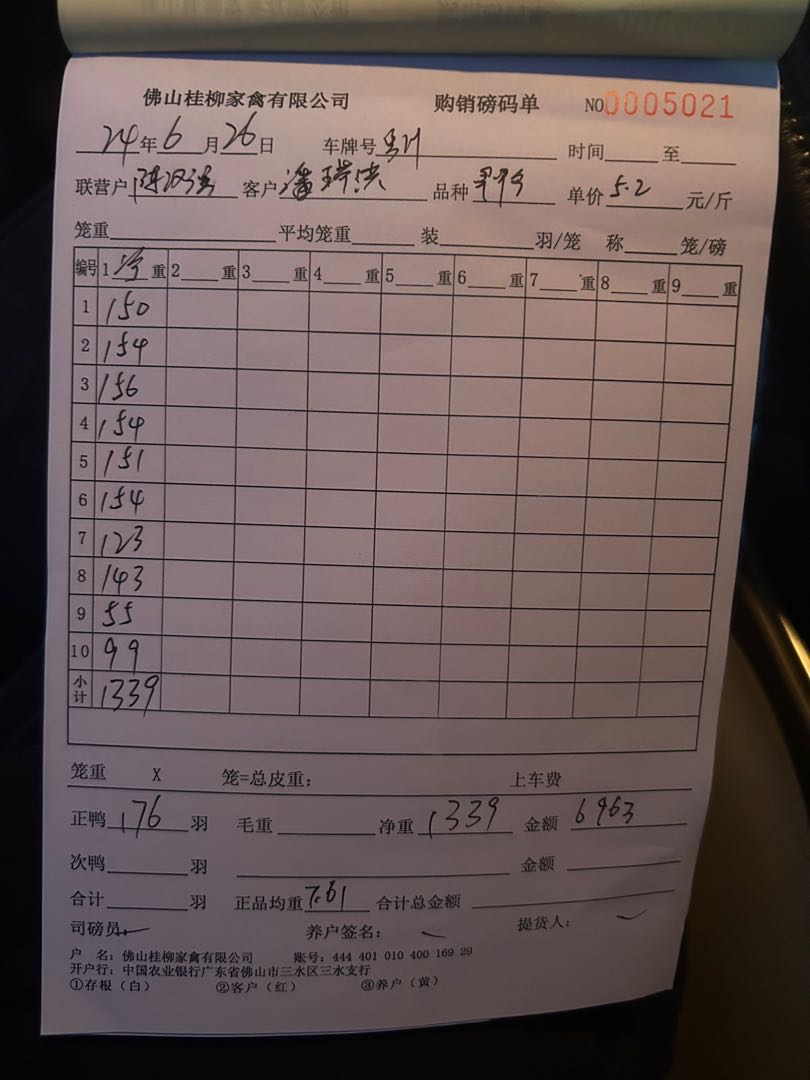 佛山桂柳家禽有限公司 购销磅码单 NO0005021
24年6月26日 车牌号 时间 至
联营户 陈汉强 客户 潘 品种 单价 5.2 元/斤
笼重 平均笼重 装 羽/笼 称 笼/磅
编号 1 重 2 重 3 重 4 重 5 重 6 重 7 重 8 重 9 重
1 150
2 154
3 156
4 154
5 151
6 154
7 123
8 143
9 55
10 99
小计 1339
笼重 X 笼=总皮重： 上车费
正鸭 176 羽 毛重 净重 1339 金额 6963
次鸭 羽 金额
合计 羽 正品均重 7.61 合计总金额
司磅员： 养户签名： 提货人：
户 名：佛山桂柳家禽有限公司 账号：444 401 010 400 169 29
开户行：中国农业银行广东省佛山市三水区三水支行
①存根（白） ②客户（红） ③养户（黄）